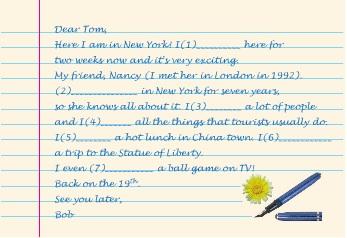 Dear Tom,
Here I am in New York! I(1)__________ here for
two weeks now and it's very exciting.
My friend, Nancy (I met her in London in 1992).
(2)_______________ in New York for seven years,
so she knows all about it. I(3)________ a lot of people
and I(4)_______ all the things that tourists usually do.
I(5)________ a hot lunch in China town. I(6)____________
a trip to the Statue of Liberty.
I even (7)___________ a ball game on TV!
Back on the 19th.
See you later,
Bob